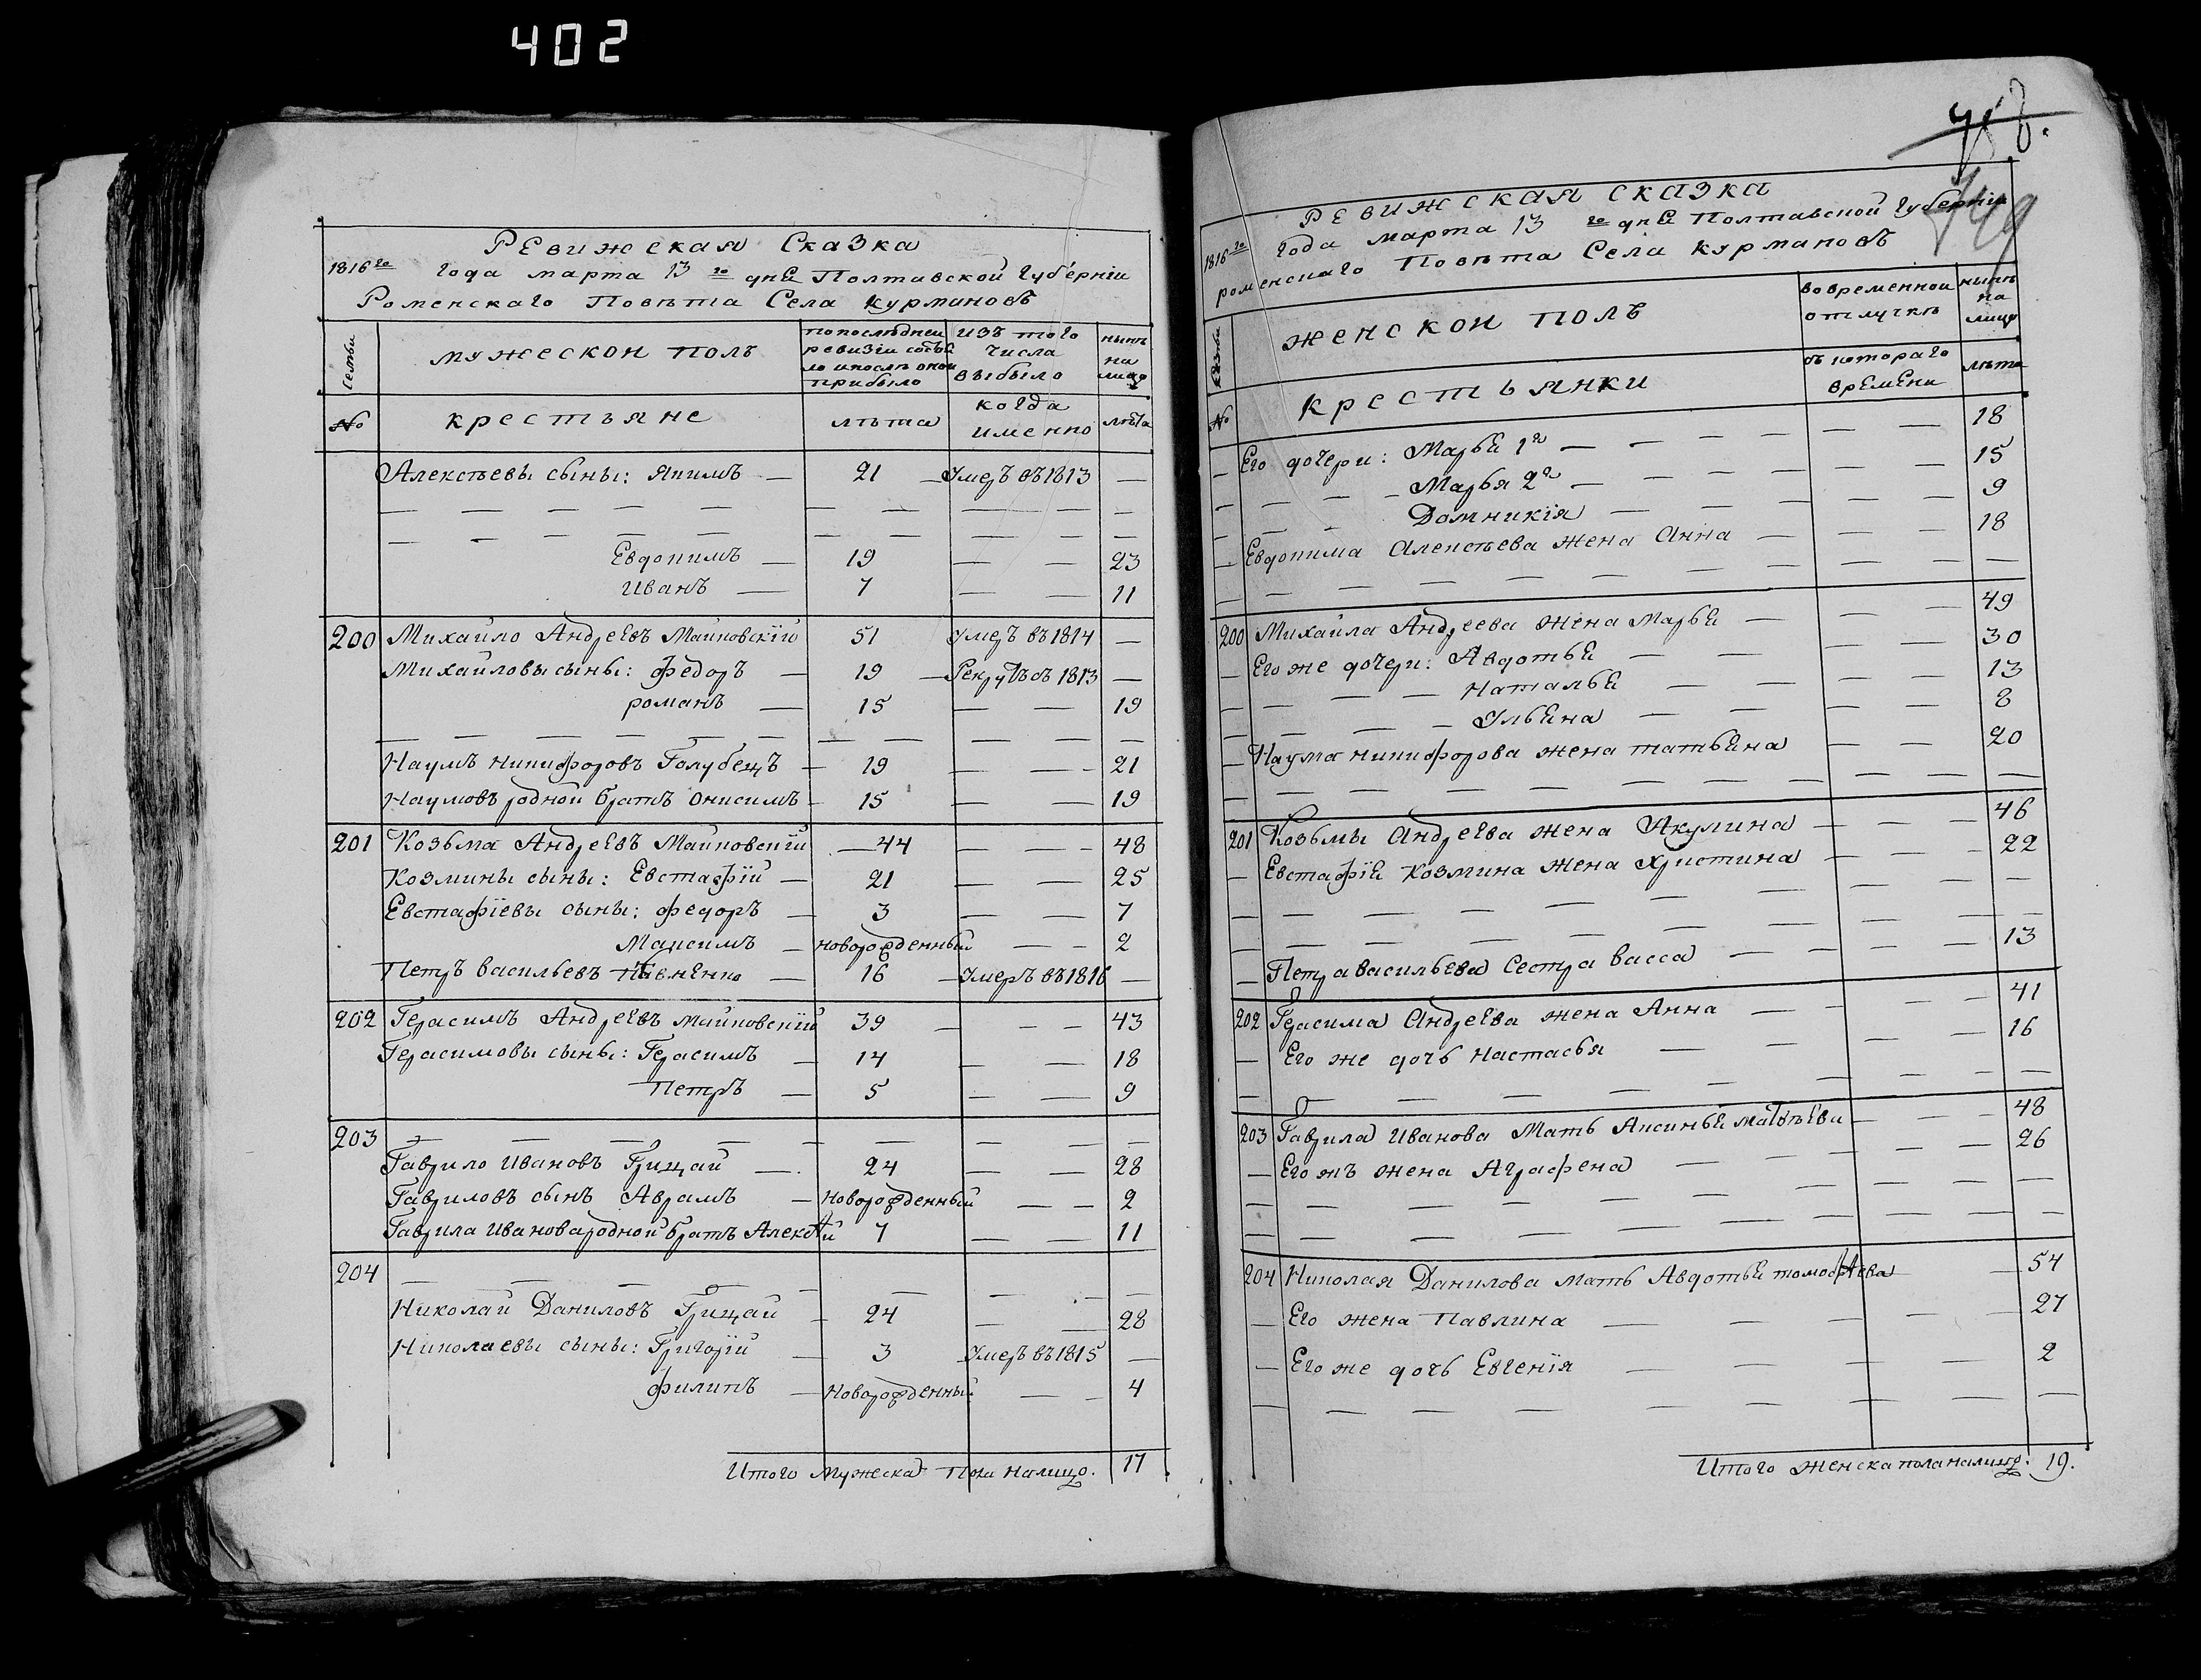 402
Ревижская Сказка
1816го года марта 13го дня Полтавской Губерніи
Роменскаго Повѣта Села Курмановъ
Семьи
мужескои полъ
попослѣдней ревизіи состояло ипослѣ оной прибыло
изъ того числа выбыло
нынѣ на лицо
№
крестъяне
лѣта
когда именно
лѣта
Алексѣевы сыны: Якимъ — 21 — Умеръ въ 1813 —
Евдокимъ — 19 — — 23
Иванъ — 7 — — 11
200 Михайло Андреевъ Маиковскїй 51 Умеръ въ 1814 —
Михайловы сыны: Федоръ — 19 — Рекрутъ въ 1813 —
романъ — 15 — — 19
Наумъ Никифоровъ Голубецъ — 19 — — 21
Наумовъ родной братъ Онисимъ — 15 — — 19
201 Козьма Андреевъ Маиковскїй — 44 — — 48
Козмины сыны: Евстафїй — 21 — — 25
Евстафїевы сыны: Федоръ — 3 — — 7
Максимъ — новорожденный — — 2
Петръ васильевъ — 16 — Умеръ въ 1816 —
202 Герасимъ Андреевъ Маиковскїй 39 — — — 43
Герасимовы сыны: Герасимъ — 14 — — 18
Петръ — 5 — — 9
203 — — — — — — — —
Гаврило Ивановъ Грицай — 24 — — 28
Гавриловъ сынъ Аврамъ — Новорожденный — — 2
Гаврила Иванова родной братъ Алексѣй 7 — — 11
204 — — — — — — — —
Николай Даниловъ Грицай — 24 — — 28
Николаевы сыны: Григорїй — 3 Умеръ въ 1815 —
филипъ — Новорожденный — — 4
Итого Мужеска Пола Налицо. 17
Ревижская сказка
1816го года марта 13го дня Полтавской Губерніи
роменскаго Повѣта Села Курмановъ
Семьи
женскои полъ
во временной отлучкѣ
нынѣ на лицо
№
крестьянки
съ котораго времени
лѣта
— Его дочери: Марья 1я — — — — — 18
— — — — Марья 2я — — — — — 15
— — — Домникїя — — — — 9
— Евдокима Алексѣева жена Анна — — — — 18
200 Михайла Андреева жена Марья — — — 49
— Его же дочери: Авдотья — — — — 30
— — — — Наталья — — — — 13
— — — — Ульяна — — — — 8
— Наума никифорова жена татьяна — — 20
201 Козьмы Андреева жена Акулина — — — 46
— Евстафїя Козмина жена Христина — — — 22
— Петра васильева Сестра васса — — — — 13
202 Герасима Андреева жена Анна — — — — 41
— Его же дочь Настасья — — — 16
203 Гаврила Иванова Мать Аксинья матвѣева — — — 48
— Его жъ жена Аграфена — — — — — 26
204 Николая Данилова мать Авдотья — 54
— Его жена Павлина — — — — — 27
— Его же дочь Евгенїя — — — — 2
Итого женска пола налицо. 19.